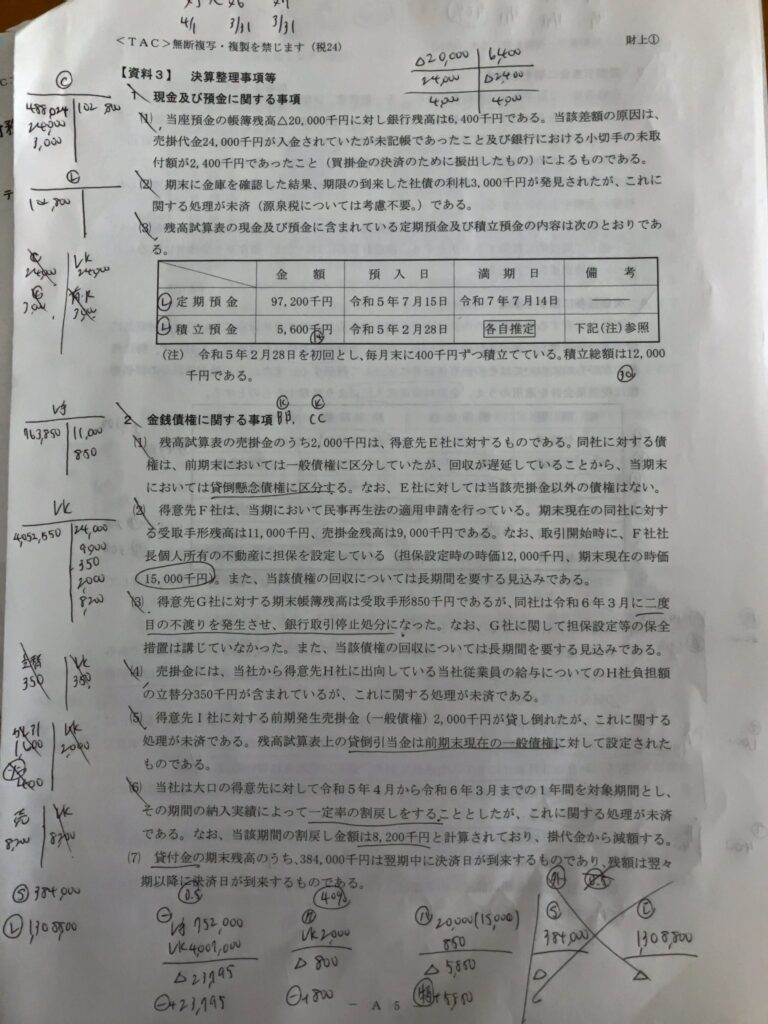 4/1 3/31 3/31
<TAC>無断複写・複製を禁じます(税24)
財上①
△20,000 6,400
24,000 △2,400
4,000 4,000
【資料3】 決算整理事項等
1 現金及び預金に関する事項
(1) 当座預金の帳簿残高△20,000千円に対し銀行残高は6,400千円である。当該差額の原因は、
売掛代金24,000千円が入金されていたが未記帳であったこと及び銀行における小切手の未取
付額が2,400千円であったこと(買掛金の決済のために振出したもの)によるものである。
(2) 期末に金庫を確認した結果、期限の到来した社債の利札3,000千円が発見されたが、これに
関する処理が未済(源泉税については考慮不要。)である。
(3) 残高試算表の現金及び預金に含まれている定期預金及び積立預金の内容は次のとおりであ
る。
金額 預入日 満期日 備考
Ⓛ 定期預金 97,200千円 令和5年7月15日 令和7年7月14日 ――
Ⓛ 積立預金 5,600千円 令和5年2月28日 各自推定 下記(注)参照
(注) 令和5年2月28日を初回とし、毎月末に400千円ずつ積立てている。積立総額は12,000
千円である。
30
2 金銭債権に関する事項
(1) 残高試算表の売掛金のうち2,000千円は、得意先E社に対するものである。同社に対する債
権は、前期末においては一般債権に区分していたが、回収が遅延していることから、当期末
においては貸倒懸念債権に区分する。なお、E社に対しては当該売掛金以外の債権はない。
(2) 得意先F社は、当期において民事再生法の適用申請を行っている。期末現在の同社に対す
る受取手形残高は11,000千円、売掛金残高は9,000千円である。なお、取引開始時に、F社社
長個人所有の不動産に担保を設定している(担保設定時の時価12,000千円、期末現在の時価
15,000千円)。また、当該債権の回収については長期間を要する見込みである。
(3) 得意先G社に対する期末帳簿残高は受取手形850千円であるが、同社は令和6年3月に二度
目の不渡りを発生させ、銀行取引停止処分になった。なお、G社に関して担保設定等の保全
措置は講じていなかった。また、当該債権の回収については長期間を要する見込みである。
(4) 売掛金には、当社から得意先H社に出向している当社従業員の給与についてのH社負担額
の立替分350千円が含まれているが、これに関する処理が未済である。
(5) 得意先I社に対する前期発生売掛金(一般債権)2,000千円が貸し倒れたが、これに関する
処理が未済である。残高試算表上の貸倒引当金は前期末現在の一般債権に対して設定された
ものである。
(6) 当社は大口の得意先に対して令和5年4月から令和6年3月までの1年間を対象期間とし、
その期間の納入実績によって一定率の割戻しをすることとしたが、これに関する処理が未済
である。なお、当該期間の割戻し金額は8,200千円と計算されており、掛代金から減額する。
(7) 貸付金の期末残高のうち、384,000千円は翌期中に決済日が到来するものであり、残額は翌々
期以降に決済日が到来するものである。
Ⓒ
488,024 102,800
24,000
3,000
Ⓛ
102,800
963,850 11,000
850
VK
4,052,550 24,000
9,000
350
2,000
8,200
VK
350 350
売 VK
8,200 8,200
Ⓢ 384,000
Ⓛ 1,308,800
0.5
952,000
VK 4,007,000
△23,795
+23,795
40%
VK 2,000
△800
+800
20,000(15,000)
850
△5,850
+5,850
Ⓢ 384,000
Ⓛ 1,308,800
△ △
－ A 5